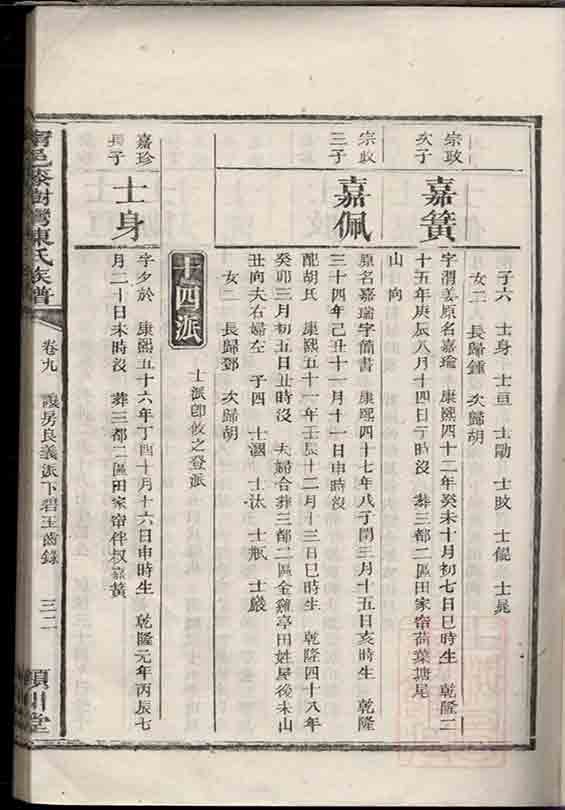 子六 士身 士亘 士勛 士敗 士儀 士晁
女二 長歸鍾 次歸胡
宗政
次子
嘉簧
字渭姜原名嘉瑜 康熙四十二年癸未十月初七日巳時生 乾隆二
十五年庚辰八月十四日亥時沒 葬三都二區田家窑荷葉塘尾
山 向
宗政
三子
嘉佩
原名嘉瑞字簡書 康熙四十七年戊子閏三月十五日亥時生 乾隆
三十四年己丑十一月十一日申時沒
配胡氏 康熙五十一年壬辰十二月十三日巳時生 乾隆四十八年
癸卯三月初五日丑時沒 夫婦合葬三都二區金雞亭田姓屋後未山
丑向夫右婦左 子四 士瀛 士汰 士瓶 士嚴
女二 長歸鄧 次歸胡
十四派
士派即攸之登派
嘉珍
長子
士身
字夕於 康熙五十六年丁酉十月十六日申時生 乾隆元年丙辰七
月二十日未時沒 葬三都二區田家窑伴叔嘉簧
甯邑 樹灣陳氏族譜
卷九 護房良義派下碧玉齒錄 三二
潁川堂